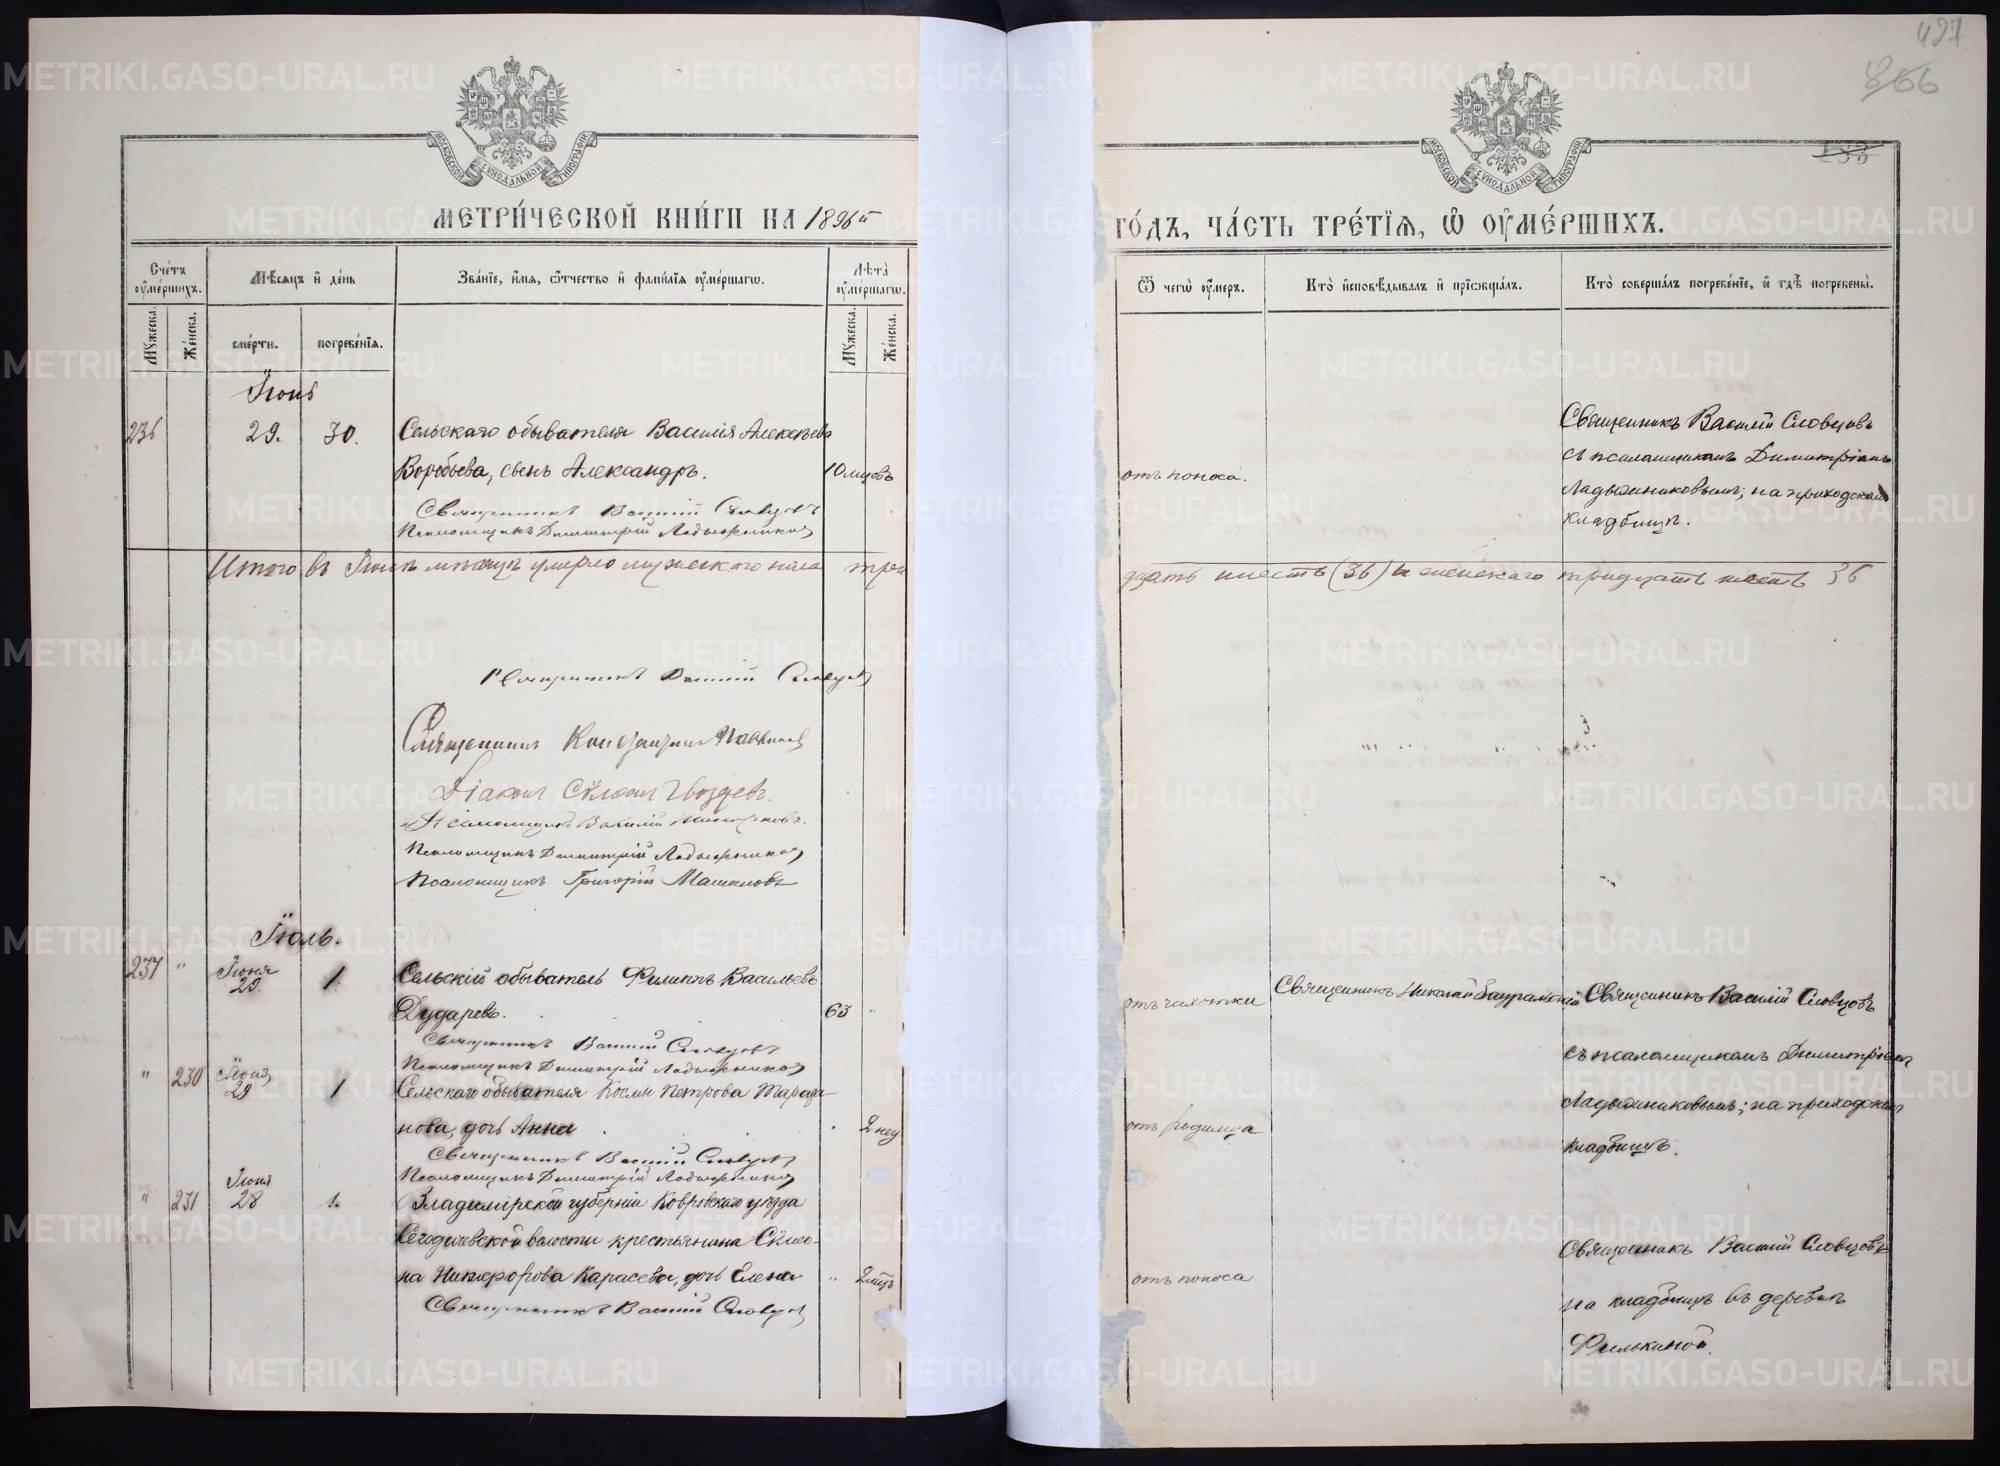 497
866
133
МОСКОВСКОЙ СУНОДАЛЬНОЙ ТИПОГРАФІИ
МОСКОВСКОЙ СУНОДАЛЬНОЙ ТИПОГРАФІИ
МЕТРИ́ЧЕСКОЙ КНИ́ГИ НА 1896й
ГО́ДЪ, ЧА́СТЬ ТРЕ́ТІѦ, Ѿ ОУ҆МЕ́РШИХЪ.
Сче́тъ оу҆ме́ршихъ.
Мѣ́сѧцъ и҆ де́нь
Зва́нїе, и҆́мѧ, ѻ҆́тчество и҆ фами́лїѧ оу҆ме́ршагѡ.
Лѣ́та оу҆ме́ршагѡ.
Ѿ чегѡ̀ оу҆́меръ.
Кто̀ и҆сповѣ́дывалъ и҆ прїѡбща́лъ.
Кто̀ соверша́лъ погребе́нїе, и҆ гдѣ̀ погребены̀.
Мꙋ́жеска.
Же́нска.
сме́рти.
погребе́нїѧ.
Мꙋ́жеска.
Же́нска.
Іюнь
236 29. 30. Сельскаго обывателя Василія Алексѣева
Воробьева, сынъ Александръ. 10 мцовъ
Священникъ Василій Словцовъ
Псаломщикъ Димитрій Ладыжниковъ
отъ поноса.
Священникъ Василій Словцовъ
съ псаломщикомъ Димитріемъ
Ладыжниковымъ; на приходскомъ
кладбищѣ.
Итого въ Іюнѣ мѣсяцѣ умерло мужескаго пола три
дцать шесть (36) и женскаго тридцать шесть 36
Священникъ Василій Словцовъ
Священникъ Константинъ
Діаконъ Сѵмеонъ Гвоздевъ.
Псаломщикъ Василій
Псаломщикъ Димитрій Ладыжниковъ
Псаломщикъ Григорій Машановъ
Іюль.
237 " Іюня 29. 1. Сельскій обыватель Филиппъ Васильевъ
Дударевъ. 63 "
Священникъ Василій Словцовъ
Псаломщикъ Димитрій Ладыжниковъ
отъ чахотки
Священникъ Николай Зауральскій
Священникъ Василій Словцовъ
съ псаломщикомъ Димитріемъ
Ладыжниковымъ; на приходскомъ
кладбищѣ.
" 230 Іюня 29 1 Сельскаго обывателя Космы Петрова Тараза-
нова, дочь Анна . 2 нед
Священникъ Василій Словцовъ
Псаломщикъ Димитрій Ладыжниковъ
отъ родимца
" 231 Іюня 28 1. Владимірской губерніи Ковровскаго уѣзда
Сегодичевской волости крестьянина Сѵмео-
на Никифорова Карасева, дочь Елена " 2 мцъ
Священникъ Василій Словцовъ
отъ поноса
Священникъ Василій Словцовъ
на кладбищѣ въ деревнѣ
Филькиной.
METRIKI.GASO-URAL.RU